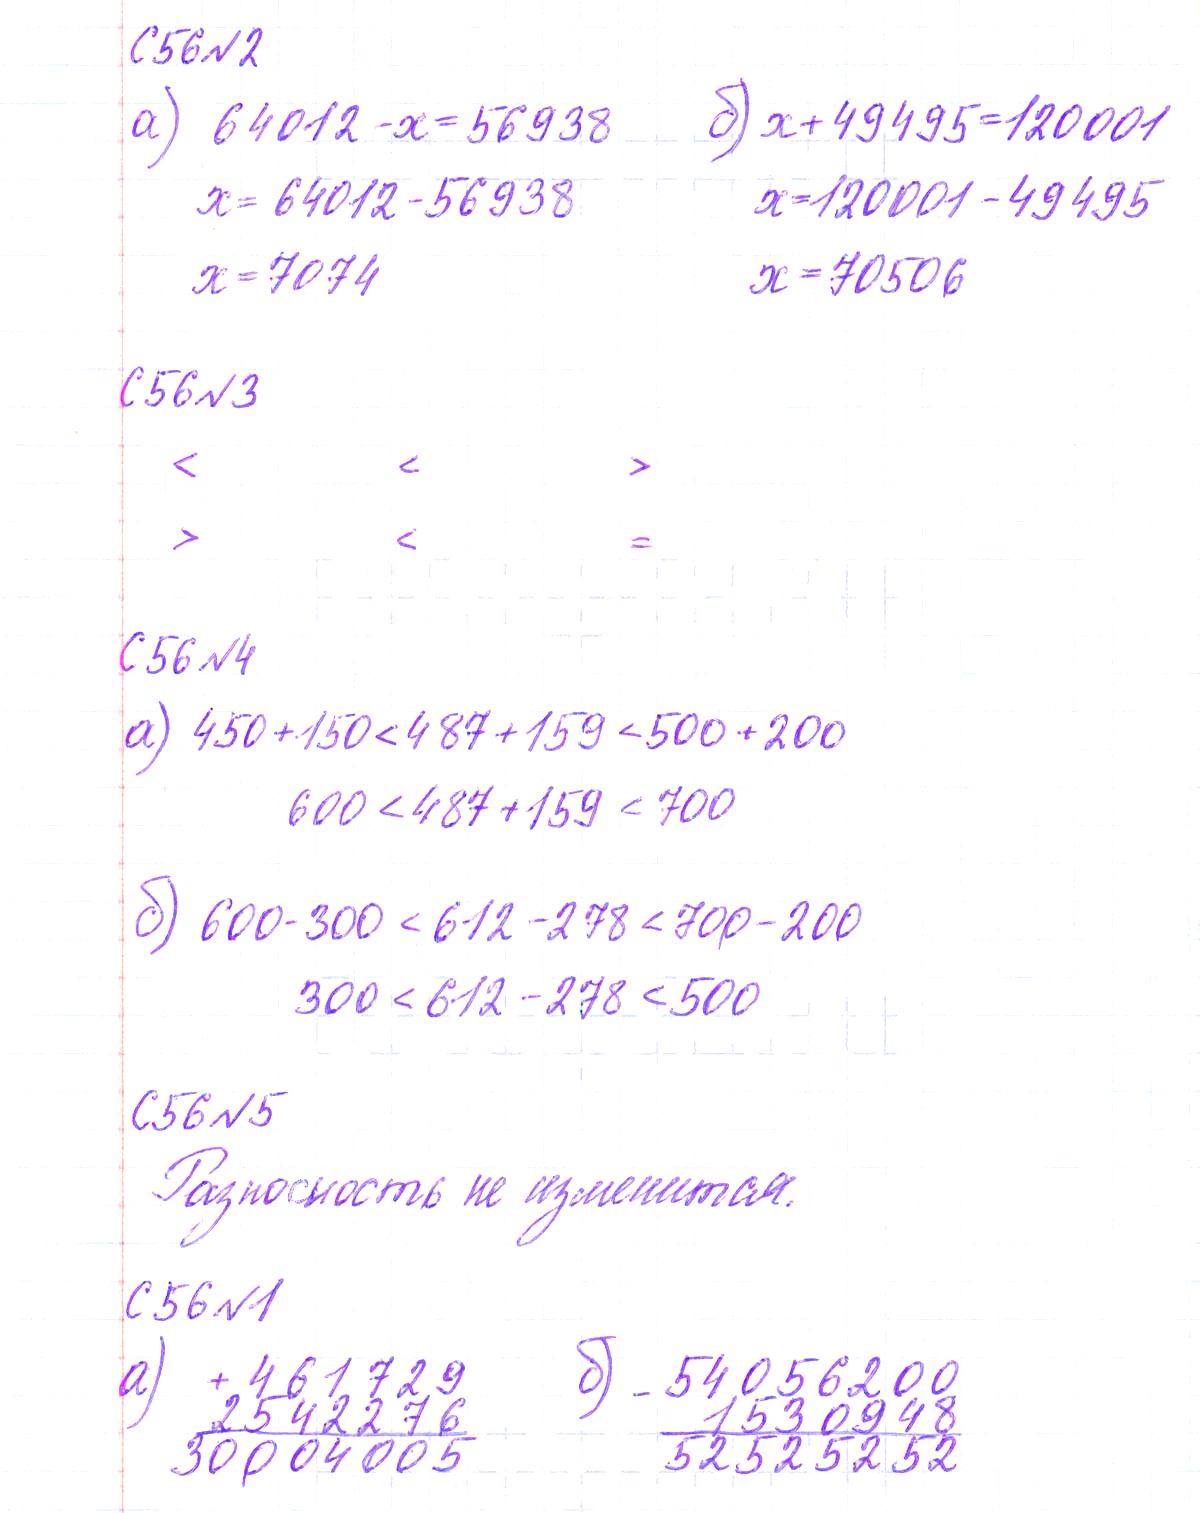 С56№2
а) 64012-х=56938 б) х+49495=120001
х=64012-56938 х=120001-49495
х=7074 х=70506
С56№3
< < >
> < =
С56№4
а) 450+150<487+159<500+200
600<487+159<700
б) 600-300<612-278<700-200
300<612-278<500
С56№5
Разносность не изменится.
С56№1
а) +461729 б) -54056200
2542276 1530948
30004005 52525252